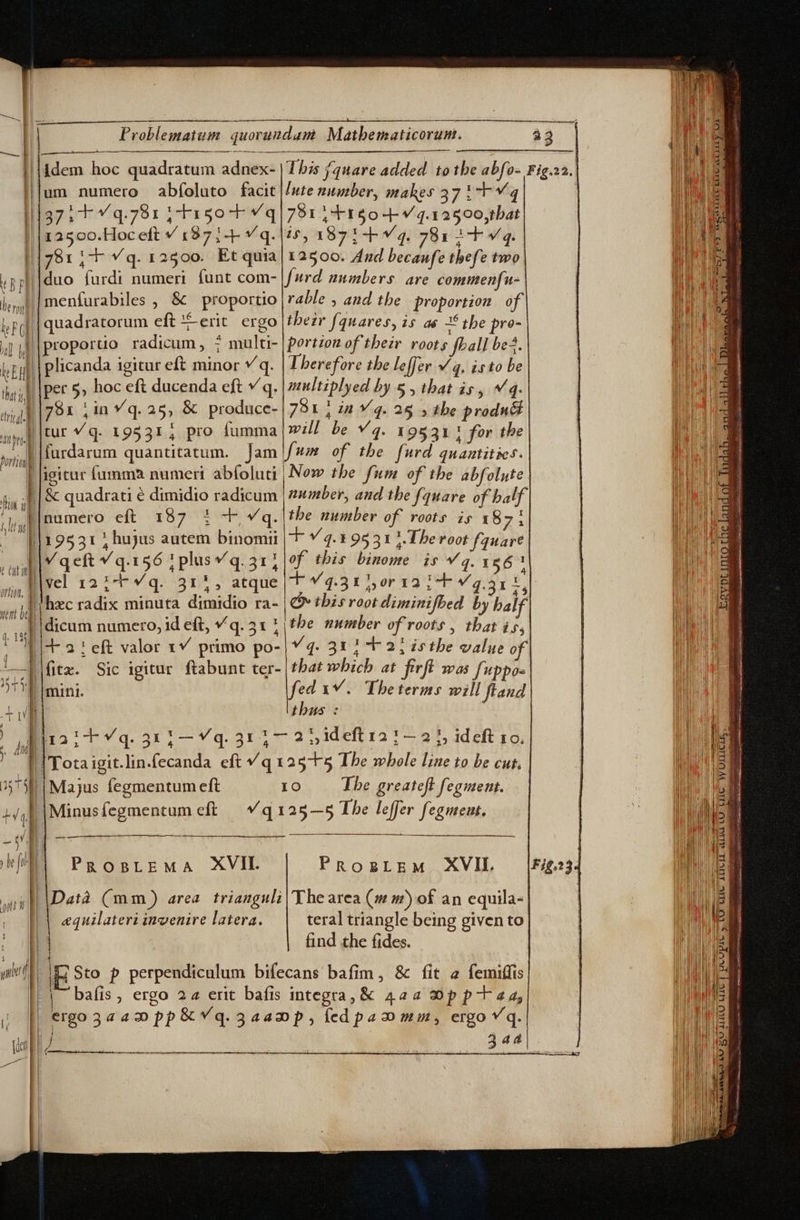 Problematum quorundam Mathematicorum. 23
idem hoc quadratum adnex-
um numero abſoluto facit
37½+√q.781¼+150+√q
12500. Hoc eſt √187½+√q.
781¼+√q. 12500. Et quia
duo ſurdi numeri ſunt com-
menſurabiles, & proportio
quadratorum eſt erit ergo
proportio radicum, multi-
plicanda igitur eſt minor √q.
per 5, hoc eſt ducenda eſt √q.
781¼ in √q. 25, & produce-
tur √q. 19531¼ pro ſumma
ſurdarum quantitatum. Jam
igitur ſumma numeri abſoluti
& quadrati è dimidio radicum
numero eſt 187½+√q.
19531¼ hujus autem binomii
√q eſt √q.156¼ plus √q.31¼
vel 12½+√q. 31¼, atque
hæc radix minuta dimidio ra-
dicum numero, id eſt, √q.31¼
+2½ eſt valor 1√ primo po-
ſitæ. Sic igitur ſtabunt ter-
mini.
This ſquare added to the abſo- Fig.22.
lute number, makes 37½+√q
781¼+150+√q.12500, that
is, 187½+√q. 781¼+√q.
12500. And becauſe theſe two
ſurd numbers are commenſu-
rable, and the proportion of
their ſquares, is as the pro-
portion of their roots ſhall be
Therefore the leſſer √q, is to be
multiplyed by 5, that is, √q.
781¼ in √q. 25, the product
will be √q. 19531¼ for the
ſum of the ſurd quantities.
Now the ſum of the abſolute
number, and the ſquare of half
the number of roots is 187½
+√q.19531¼. The root ſquare
of this binome is √q. 156¼
+√q.31¼, or 12½+√q.31¼,
& this root diminiſhed by half
the number of roots, that is,
√q. 31¼+2½ is the value of
that which at firſt was ſuppo-
ſed 1√. The terms will ſtand
thus:
12½+√q. 31¼—√q. 31¼—2½, id eſt 12½—2½, id eſt 10.
Tota igit. lin. ſecanda eſt √q125+5 The whole line to be cut.
Majus ſegmentum eſt 10 The greateſt ſegment.
Minus ſegmentum eſt √q125—5 The leſſer ſegment.
PROBLEMA XVII.
Datâ (mm) area trianguli
æquilateri invenire latera.
PROBLEM XVII. Fig.23.
The area (mm) of an equila-
teral triangle being given to
find the ſides.
ESto p perpendiculum biſecans baſim, & ſit a ſemiſſis
baſis, ergo 2a erit baſis integra, & 4aa ∞ pp+aa,
ergo 3aa ∞ pp & √q. 3aa ∞ p, ſed pa ∞ mm, ergo √q.
3aa